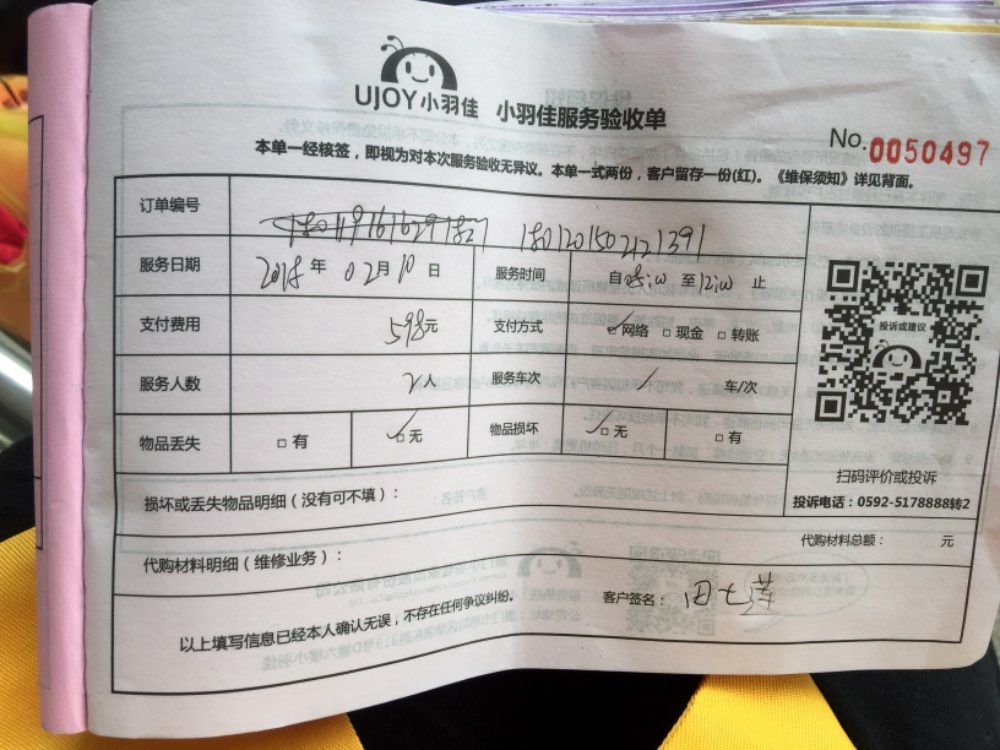 UJOY小羽佳 小羽佳服务验收单
No.0050497
本单一经核签，即视为对本次服务验收无异议。本单一式两份，客户留存一份(红)。《维保须知》详见背面。
订单编号 1801201502121391
服务日期 2018年02月10日 服务时间 自 至12:00止
支付费用 598元 支付方式 ☑网络 □现金 □转账
服务人数 2人 服务车次 / 车/次
物品丢失 □有 ☑无 物品损坏 ☑无 □有
投诉或建议
扫码评价或投诉
投诉电话：0592-5178888转2
损坏或丢失物品明细（没有可不填）：
代购材料明细（维修业务）：
代购材料总额： 元
以上填写信息已经本人确认无误，不存在任何争议纠纷。
客户签名：田七莲